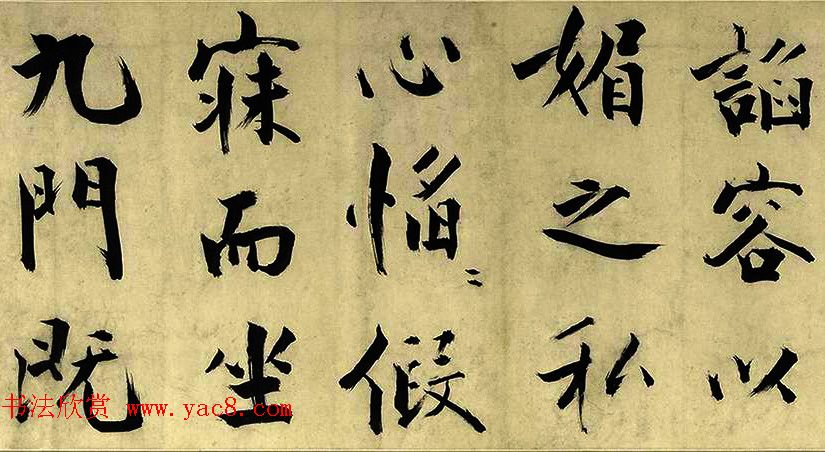 諂容以
媚之私
心慆〻假
寐而坐
九門既
书法欣赏 www.yac8.com